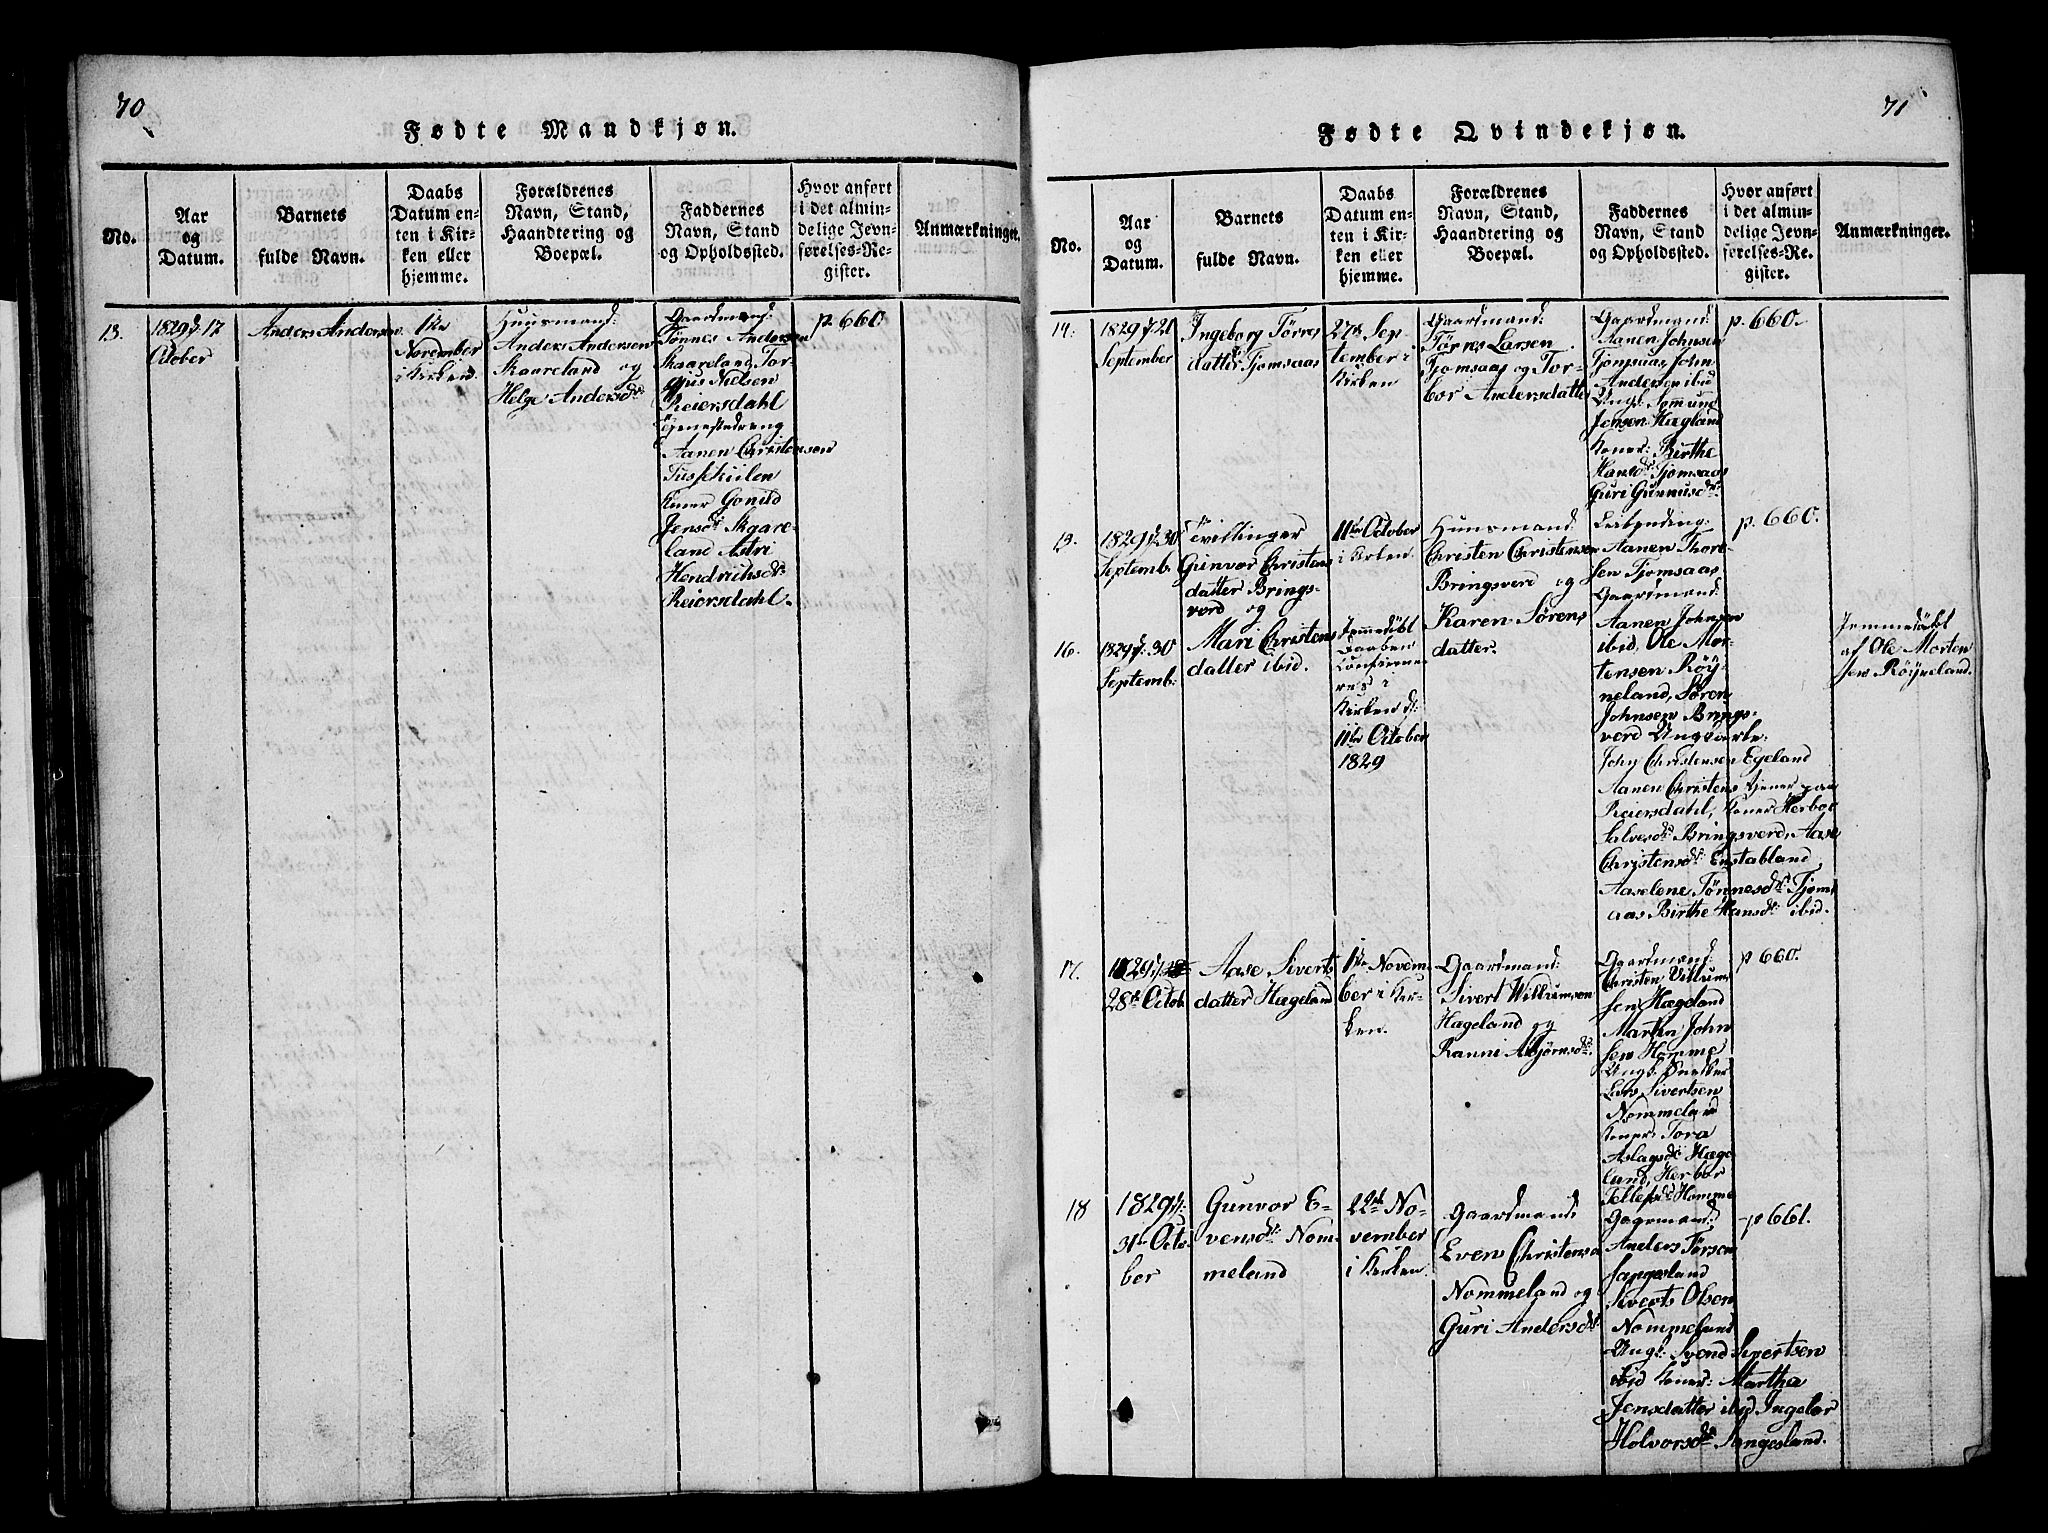 70
Fødte Mandkjøn.
No.
Aar
og
Datum.
Barnets
fulde Navn.
Daabs
Datum en-
ten i Kir-
ken eller
hjemme.
Forældrenes
Navn, Stand,
Haandtering og
Boepæl.
Faddernes
Navn, Stand
og Opholdssted.
Hvor anført
i det almin-
delige Jevn-
førelses-Re-
gister.
Anmærkninger.
13.
1829 d: 17
October
Anders Andersen
1ste
November
i Kirken
Huusmand:
Anders Andersen
Skaareland og
Helge Andersdr
Gaardmand:
Tønnes Andersen
Skaareland, Tor-
gjus Nielsen
Reiersdahl
tjenestedreng
Aanen Christensen
Koner Gonild
Jensdr Skaare-
land Astri
Hendrichsdr
Reiersdahl.
p. 660
71
Fødte Qvindekjøn.
No.
Aar
og
Datum.
Barnets
fulde Navn.
Daabs
Datum en-
ten i Kir-
ken eller
hjemme.
Forældrenes
Navn, Stand,
Haandtering og
Boepæl.
Faddernes
Navn, Stand
og Opholdssted.
Hvor anført
i det almin-
delige Jevn-
førelses-Re-
gister.
Anmærkninger.
14.
1829 d: 20
September
Ingeborg Tørres
datter Tjomsaas
27de Sep
tember i
Kirken
Gaardmand:
Tørres Larsen
Tjomsaas og Tor-
bor Andersdatter
Gaardmand:
Aanen Johnsen
Tjomsaas, John
Andersen ibid
Ungk: Aamund
Jensen Hægland
Koner: Birthe
Hansdr Tjomsaas
Guri Gunnusdr
p. 660.
15.
1829 d: 30
Septemb.
Tvillinger
Gunvor Christens
datter Brings-
verd og
11te October
i Kirken
Huusmand:
Christen Christensen
Bringsverd og
Karen Sørens
datter.
Aanen Thore-
sen Tjomsaas
Gaardmand:
Aanen Johnsen
ibid, Ole Mor-
tensen Röy-
neland, Søren
Johnsen Brings-
verd Ungkarle:
John Christensen Egeland
Aanen Christens tjener paa
Reiersdahl, Koner Herbor
Salvesdr Bringsverd, Aase
Christensdr Enstabland,
Aaselene Tønnesdr Tjoms
aas Birthe Hansdr ibid.
p. 660.
16.
1829 d: 30
Septemb:
Mari Christens
datter ibid.
Hjemmedöbt
Daaben
Confirme-
res i
Kirken d:
11te October
1829
Hjemmedöbt
af Ole Morten
sen Röyneland.
17.
1829 d:
28de Octob.
Aase Siverts
datter Hægeland
1ste Novem
ber i Kir-
ken.
Gaardmand:
Sivert Willumsen
Hægeland og
Ranni Asbjørnsdr.
Gaardmand:
Christen Villum
sen Hægeland
Marten John
sen Homme
Lars Sivertsen
Nommeland
Koner: Tora
Aslagsdr Hæge
land, Herbor
Tellefsdr Homme
p 660.
18
1829 d:
31te Octo-
ber
Gunvor E-
vensdr: Nom-
meland
22de No-
vember
i Kirken.
Gaardmand:
Even Christensen
Nommeland og
Guri Andersdr
Gaardmand:
Anders Tørsen
Sangesland
Siverts Olsen
Nommeland
Ungk: Svend Sivertsen
ibid Koner: Martha
Jensdatter ibid Ingebor
Holvorsdr Sangesland.
p 661.